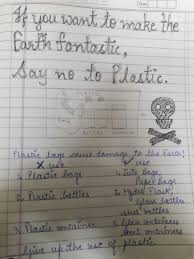 If you want to make the
Earth fantastic,
Say no to Plastic.
Plastic bags cause damage to the Earth!
X use
✓ use
1. Plastic bags
1. Jute Bags,
Paper bags
2. Plastic bottles
2. 
Glass bottles
steel bottles
3. Plastic container
3. Glass containers
steel containers
Give up the use of plastic